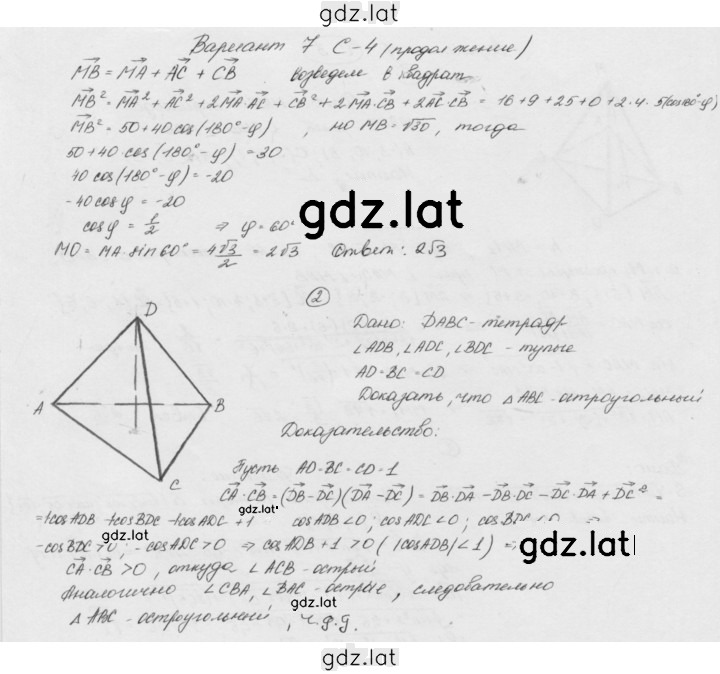 gdz.lat
Вариант 7 С-4 (продолжение)
MB = MA + AC + CB возведем в квадрат
MB² = MA² + AC² + 2MA·AC + CB² + 2MA·CB + 2AC·CB = 16+9+25+0+2·4·5(cos180°-φ)
MB² = 50+40cos(180°-φ) , но MB=√30, тогда
50+40·cos(180°-φ) = 30
40 cos(180°-φ) = -20
-40cosφ = -20
cosφ = 1/2 ⇒ φ = 60°
gdz.lat
MO = MA·sin60° = 4√3/2 = 2√3 Ответ: 2√3
2
D
A
B
C
Дано: DABC - тетраэдр
∠ADB, ∠ADC, ∠BDC - тупые
AD = BC = CD
Доказать, что △ABC - остроугольный
Доказательство:
Пусть AD = BC = CD = 1
CA·CB = (DB-DC)(DA-DC) = DB·DA - DB·DC - DC·DA + DC² =
gdz.lat
= 1cosADB -1cosBDC -1cosADC +1 cosADB<0; cosADC<0; cosBDC<0
-cosBDC>0; -cosADC>0 ⇒ cosADB+1>0 (|cosADB|<1) ⇒
gdz.lat
CA·CB>0, откуда ∠ACB - острый
Аналогично ∠CBA, ∠BAC - острые, следовательно
gdz.lat
△ABC - остроугольный, ч.т.д.
gdz.lat